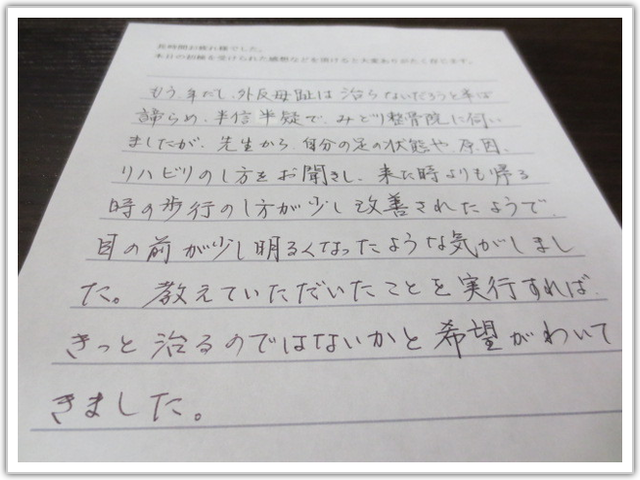 長時間お疲れ様でした。
本日の初検を受けられた感想などを頂けると大変ありがたく存じます。
もう年だし、外反母趾は治らないだろうと半ば
諦らめ、半信半疑で、みどり整骨院に伺い
ましたが、先生から、自分の足の状態や、原因、
リハビリのし方をお聞きし、来た時よりも帰る
時の歩行のし方が少し改善されたようで、
目の前が少し明るくなったような気がしまし
た。教えていただいたことを実行すれば、
きっと治るのではないかと希望がわいて
きました。